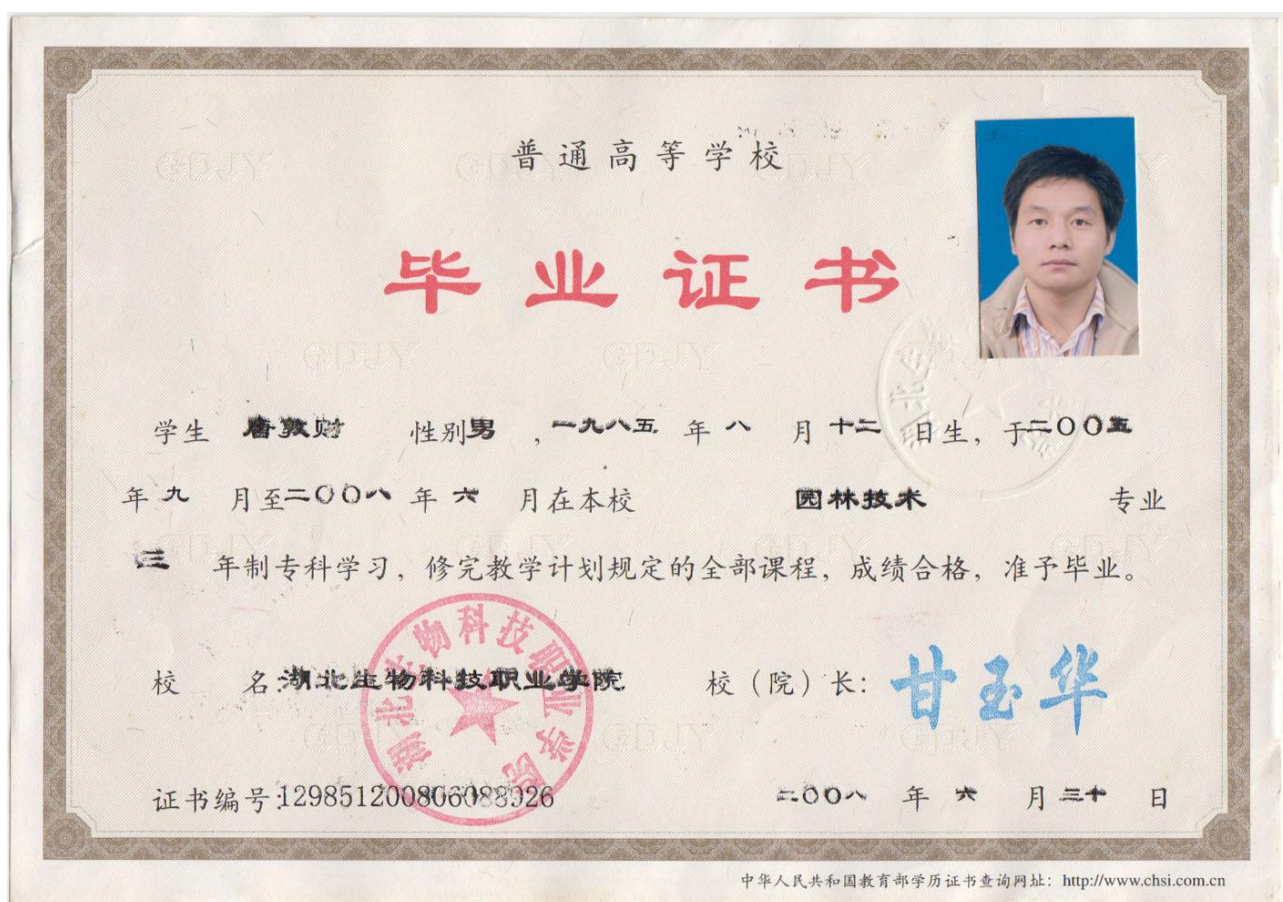 普通高等学校
毕业证书
学生 唐敦财 性别男，一九八五 年 八 月 十二 日生，于二〇〇五
年 九 月至二〇〇八 年 六 月在本校 园林技术 专业
三 年制专科学习，修完教学计划规定的全部课程，成绩合格，准予毕业。
校 名：湖北生物科技职业学院 校（院）长：甘玉华
湖北生物科技职业学院
证书编号： 二〇〇八 年 六 月 三十 日
中华人民共和国教育部学历证书查询网址：http://www.chsi.com.cn